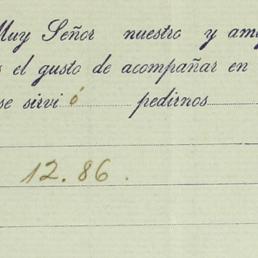 Muy Señor nuestro y am
el gusto de acompañar en
se sirvió pedirnos
12.86.